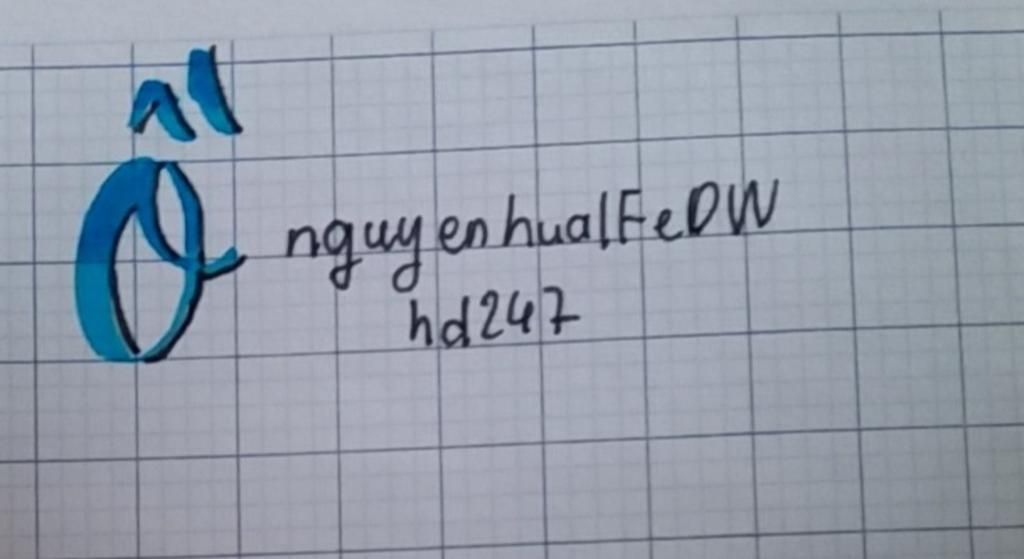 Ố nguyenhualFeDW
hd247